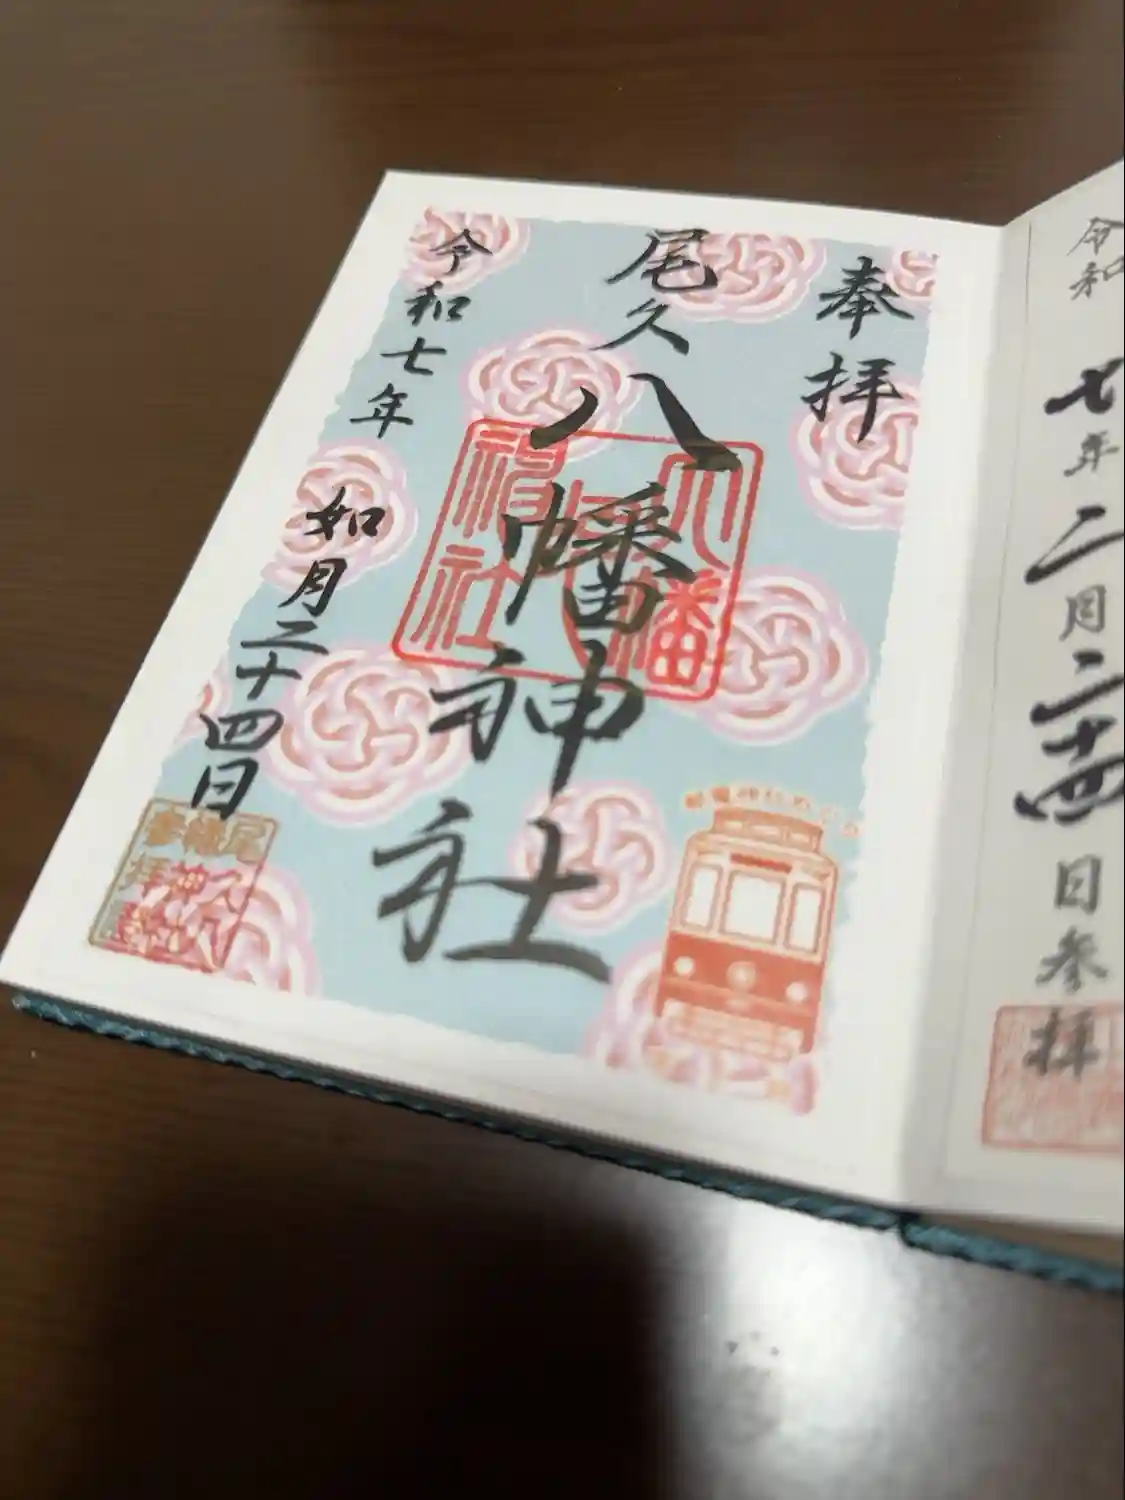 令和
七年二月二十四日参拝
奉拝
尾久八幡神社
八幡神社
令和七年 如月二十四日
尾久八幡神社参拝